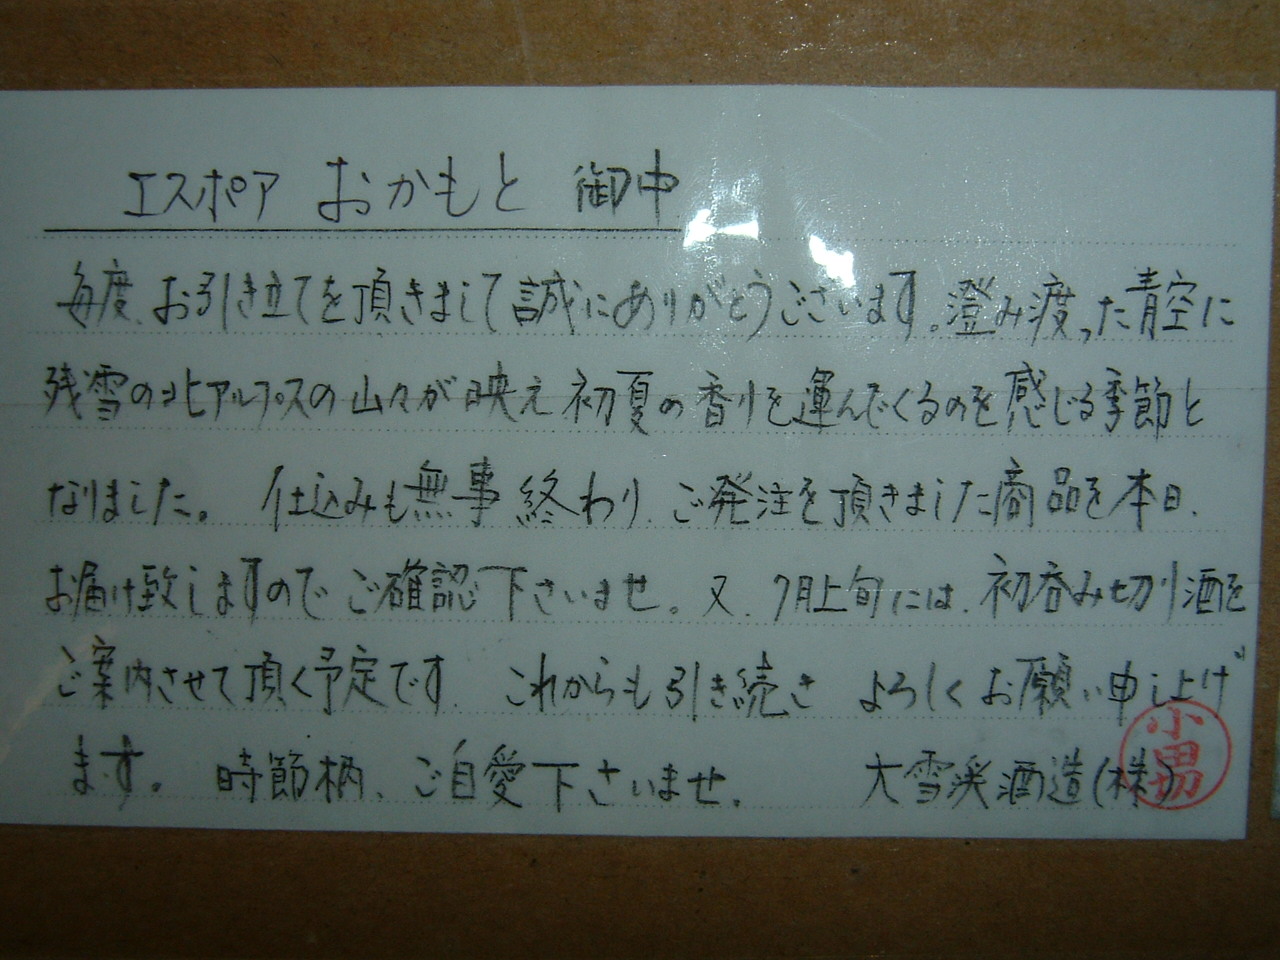 エスポア おかもと 御中
毎度、お引き立てを頂きまして誠にありがとうございます。澄み渡った青空に
残雪の北アルプスの山々が映え初夏の香りを運んでくるのを感じる季節と
なりました。 仕込みも無事終わり、ご発注を頂きました商品を本日、
お届け致しますのでご確認下さいませ。又、7月上旬には、初呑み切り酒を
ご案内させて頂く予定です。 これからも引き続き よろしくお願い申し上げ
ます。 時節柄、ご自愛下さいませ。 大雪渓酒造(株)